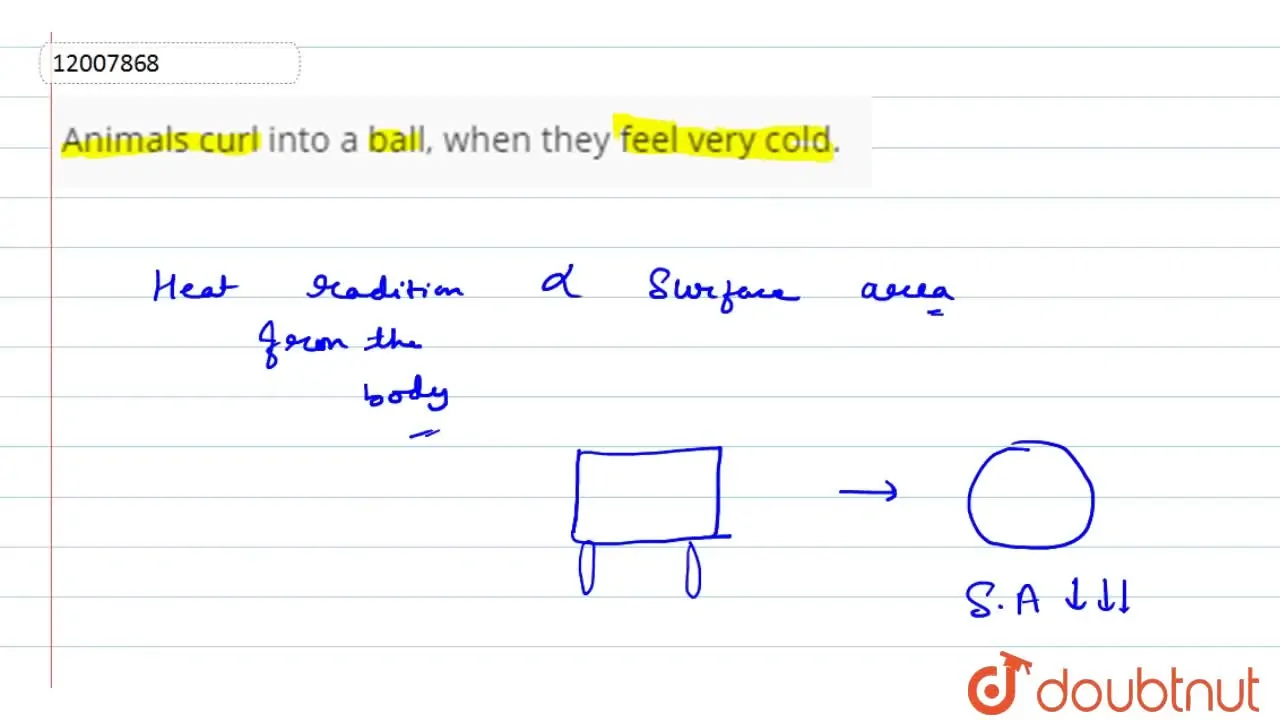 12007868
Animals curl into a ball, when they feel very cold.
Heat radition α Surface area
from the
body
S.A ↓↓↓
doubtnut